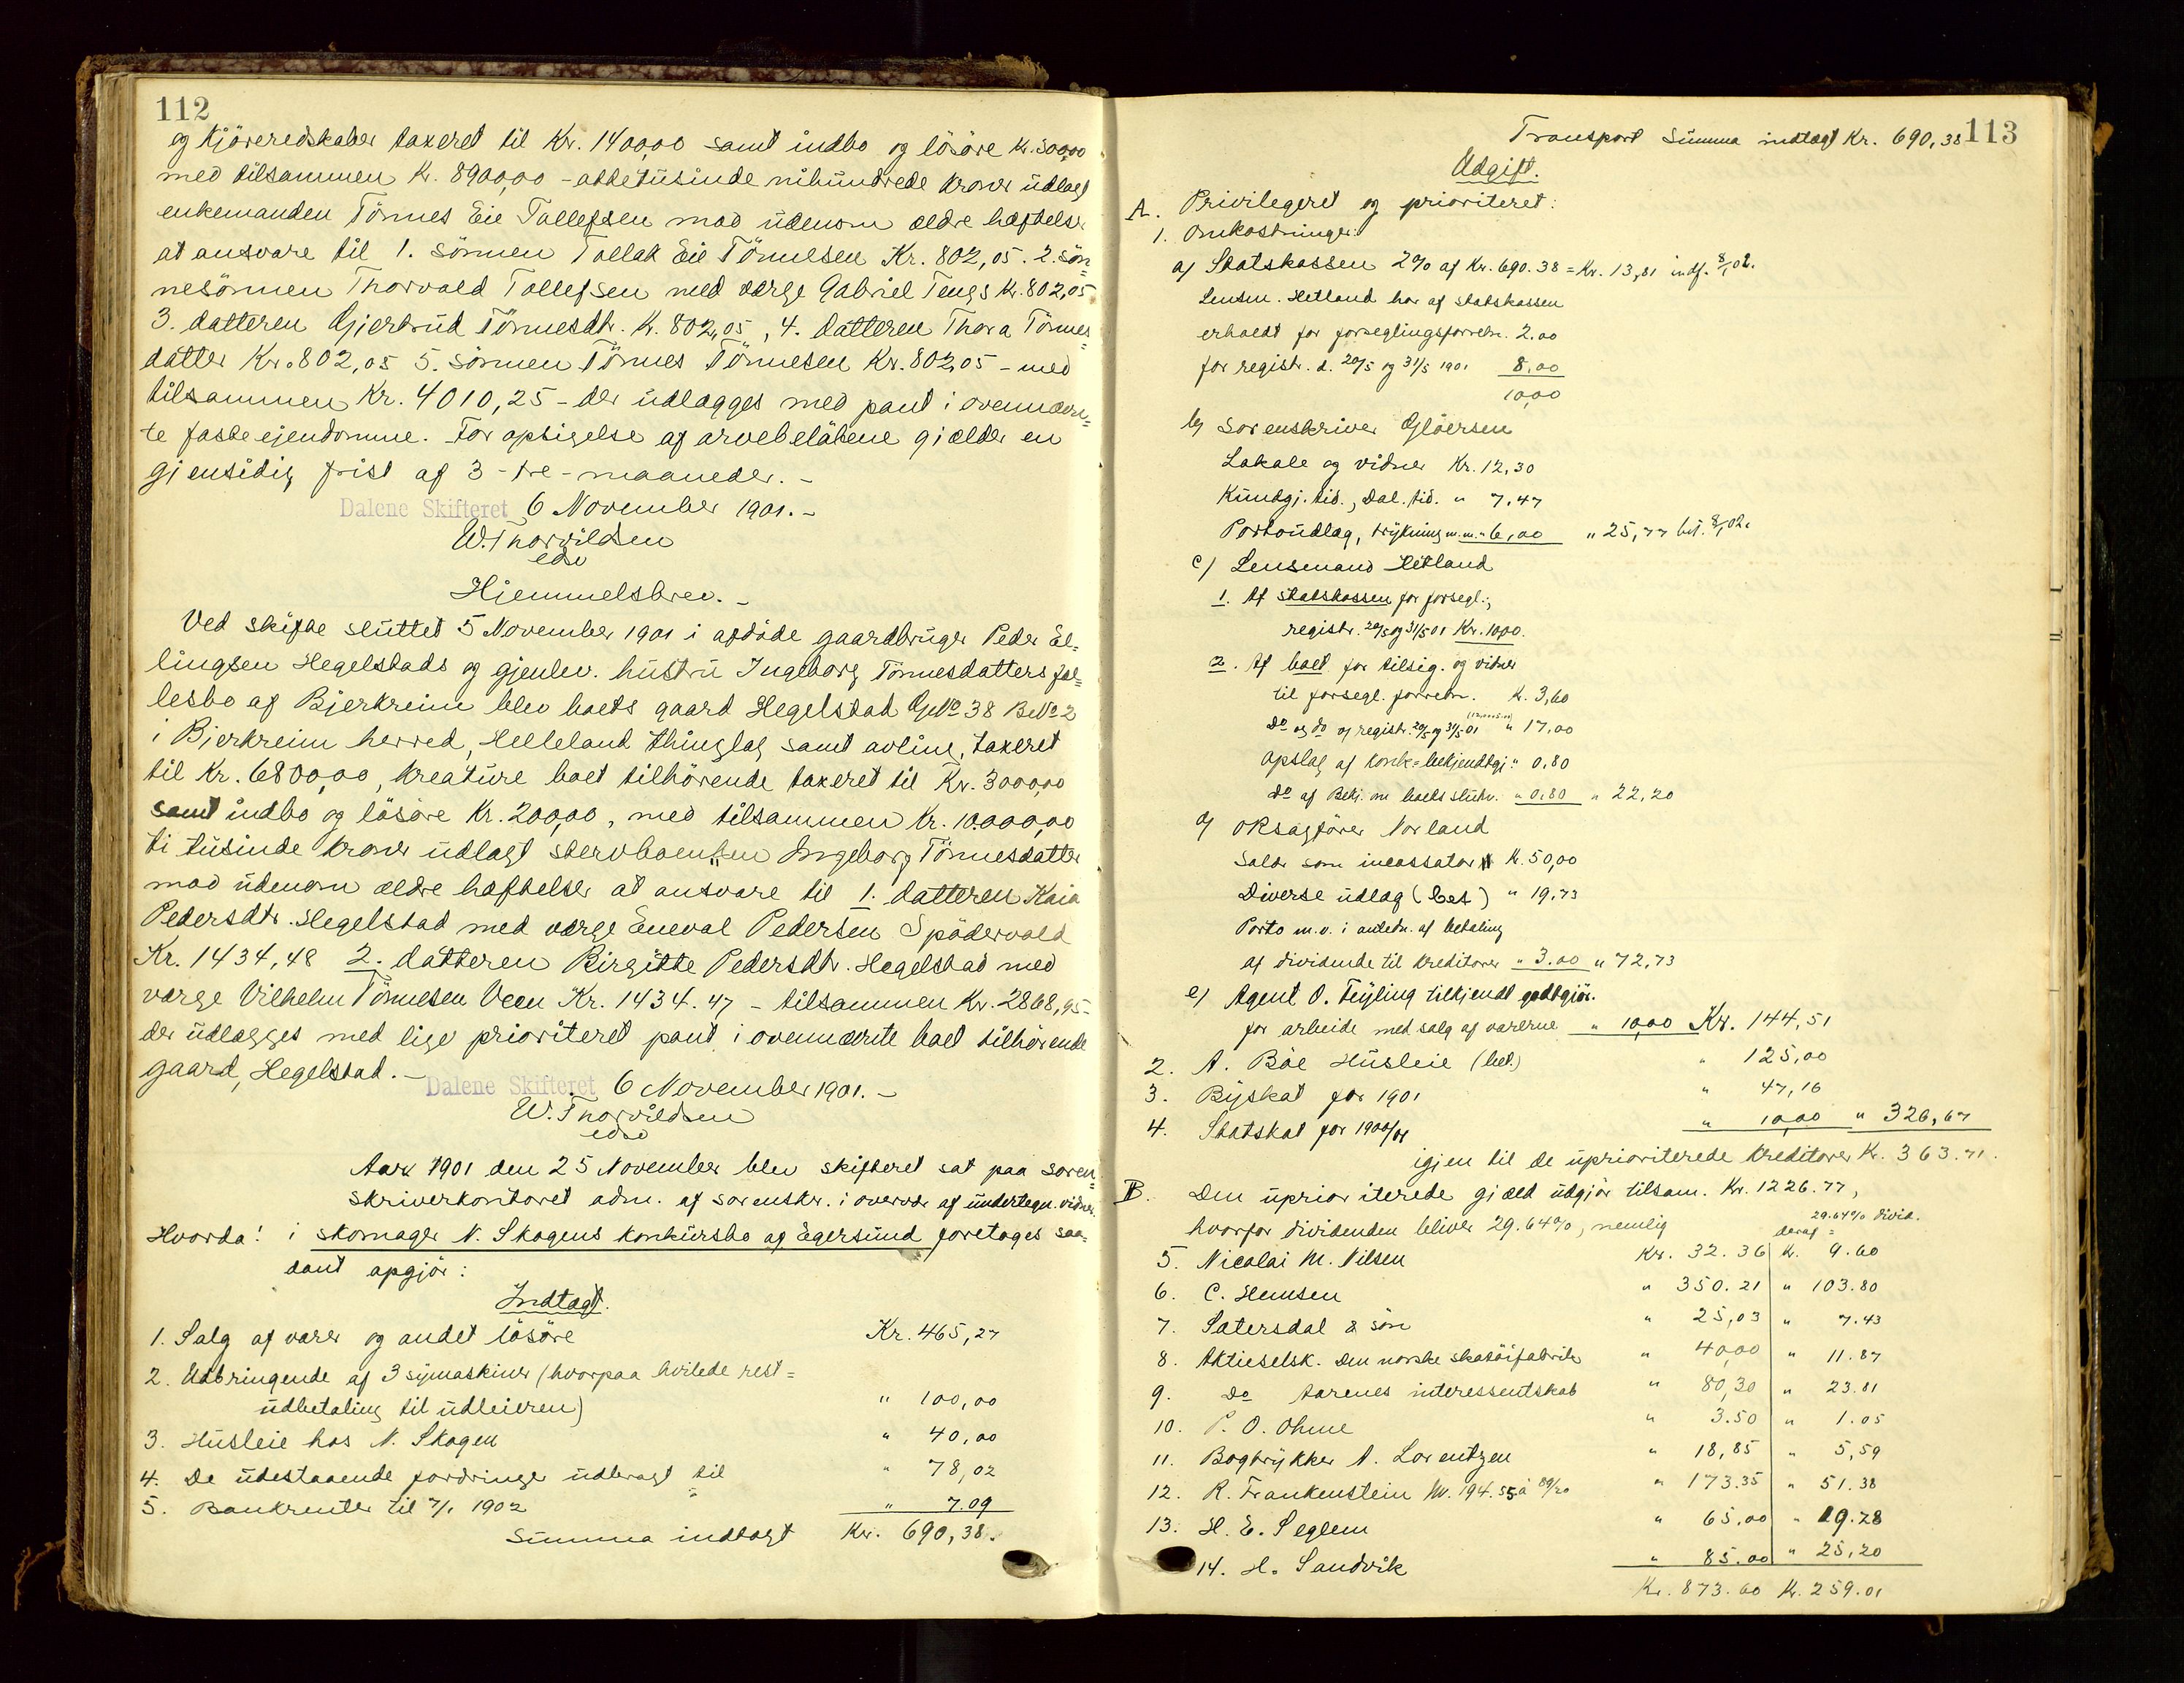 112
og kjöreredskaber taxeret til Kr. 1400,00 samt indbo og lösöre Kr. 300,00
med tilsammen Kr. 8900,00 - ottetusinde nihundrede kroner udlagt
enkemanden Tönnes Eie Tollefsen mod udenom ældre heftelser
at ansvare til 1. sönnen Tollak Eie Tönnesen Kr. 802,05. 2. sön=
nesönnen Thorvald Tollefsen med værge Gabriel Tengs Kr. 802,05
3. datteren Gjertrud Tönnesdtr. Kr. 802,05, 4. datteren Thora Tönnes=
datter Kr. 802,05 5. sönnen Tönnes Tönnesen Kr. 802,05 - med
tilsammen Kr. 4010,25 - der udlægges med pant i ovennævn=
te faste ejendomme. For opsigelse af arvebeløbene gjælder en
gjensidig frist af 3 - tre - maaneder. -
Dalene Skifteret 6 November 1901. -
W. Thorvildsen
edsv
Hjemmelsbrev. -
Ved skifte sluttet 5 November 1901 i afdöde gaardbruger Peder El=
lingsen Hegelstads og gjenlev. hustru Ingeborg Tönnesdatters fæl=
lesbo af Bjerkreim blev boets gaard Hegelstad GNo 38 BNo 2
i Bjerkreim herred, Helleland thinglag samt avling, taxeret
til Kr. 6800,00, kreature boet tilhörende taxeret til Kr. 3000,00
samt indbo og lösöre Kr. 200,00, med tilsammen Kr. 10.000,00
ti tusinde kroner udlagt stervboenken Ingeborg Tönnesdatter
mod udenom ældre heftelser at ansvare til 1. datteren Kaia
Pedersdtr. Hegelstad med værge Eneval Pedersen Spödervold
Kr. 1434,48 2. datteren Birgitte Pedersdtr. Hegelstad med
værge Vilhelm Tönnesen Veen Kr. 1434.47 - tilsammen Kr. 2868,95 -
der udlægges med lige prioriteret pant i ovennævnte boet tilhörende
gaard, Hegelstad. -
Dalene Skifteret 6 November 1901. -
W. Thorvildsen
edsv
Aar 1901 den 25 November blev skifteret sat paa soren=
skriverkontoret adm. af sorenskr. i overvær af undertegn. vidner.
Hvorda! i skomager N. Skogens konkursbo af Egersund foretoges saa=
dant opgjör:
Indtægt.
1. Salg af varer og andet lösöre Kr. 465,27
2. Udbringende af 3 symaskiner (hvorpaa hvilede rest=
udbetaling til udleieren) " 100,00
3. Husleie hos N. Skogen " 40,00
4. De udestaaende fordringer udbragt til " 78,02
5. Bankrenter til 7/1 1902 " 7.09
Summa indtægt Kr. 690,38.
113
Transport Summa indtægt Kr. 690,38
Udgift.
A. Privilegeret og prioriteret:
1. Omkostninger:
a) Statskassen 2% af Kr. 690.38 = Kr. 13,81 indf. 8/1 02.
Lensm. Hetland har af statskassen
erholdt for forseglingsforretn. 2.00
for registr. d. 20/5 og 31/5 1901 8,00
10,00
b) Sorenskriver Gløersen
Lokale og vidner Kr. 12,30
Kundgj. tid., Dal. tid. " 7,47
Portoudlag, trykning m.m. " 6,00 " 25,77 bet. 8/1 02.
c) Lensmand Hetland
1. Af statskassen for forsegl.,
registr. 20/5 og 31/5 01 Kr. 10,00.
2. Af boet for tilsig. og vidner
til forsegl. forretn. Kr. 3,60
Do og do og registr. 20/5 og 31/5 01 " 17,00
Opslag af konk=bekjendtgj. " 0,80
do af Bekj. om boets slutn. " 0.80 " 22,20
d) Oksagförer Norland
Salær som incassator Kr. 50,00
Diverse udlæg (bet) " 19,73
Porto m.v. i anledn. af betaling
af dividende til kreditorer " 3.00 " 72,73
e) Agent O. Feyling tilkjendt godtgjör.
for arbeide med salg af varerne " 10,00 Kr. 144,51
2. A. Böe Husleie (bet.) " 125,00
3. Byskat for 1901 " 47,16
4. Statskat for 1900/01 " 10,00 " 326,67
igjen til de uprioriterede kreditorer Kr. 363.71.
B. Den uprioriterede gjæld udgjör tilsam. Kr. 1226.77,
hvorfor dividenden bliver 29.64%, nemlig
29.64% divid.
deraf =
5. Nicolai M. Nilsen Kr. 32.36 Kr. 9.60
6. C. Hemsen " 350.21 " 103.80
7. Satersdal & sön " 25,03 " 7.43
8. Aktieselsk. Den norske skotöifabrik " 40,00 " 11.87
9. Do Aarenes interessentskab " 80,30 " 23.81
10. P. O. Ohme " 3.50 " 1.05
11. Bogtrykker A. Lorentzen " 18,85 " 5,59
12. R. Frankenstein M. 194.55 à 89/20 " 173.35 " 51.38
13. H. E. Seglem " 65,00 " 19.28
14. H. Sandvik " 85.00 " 25,20
Kr. 873.60 Kr. 259.01